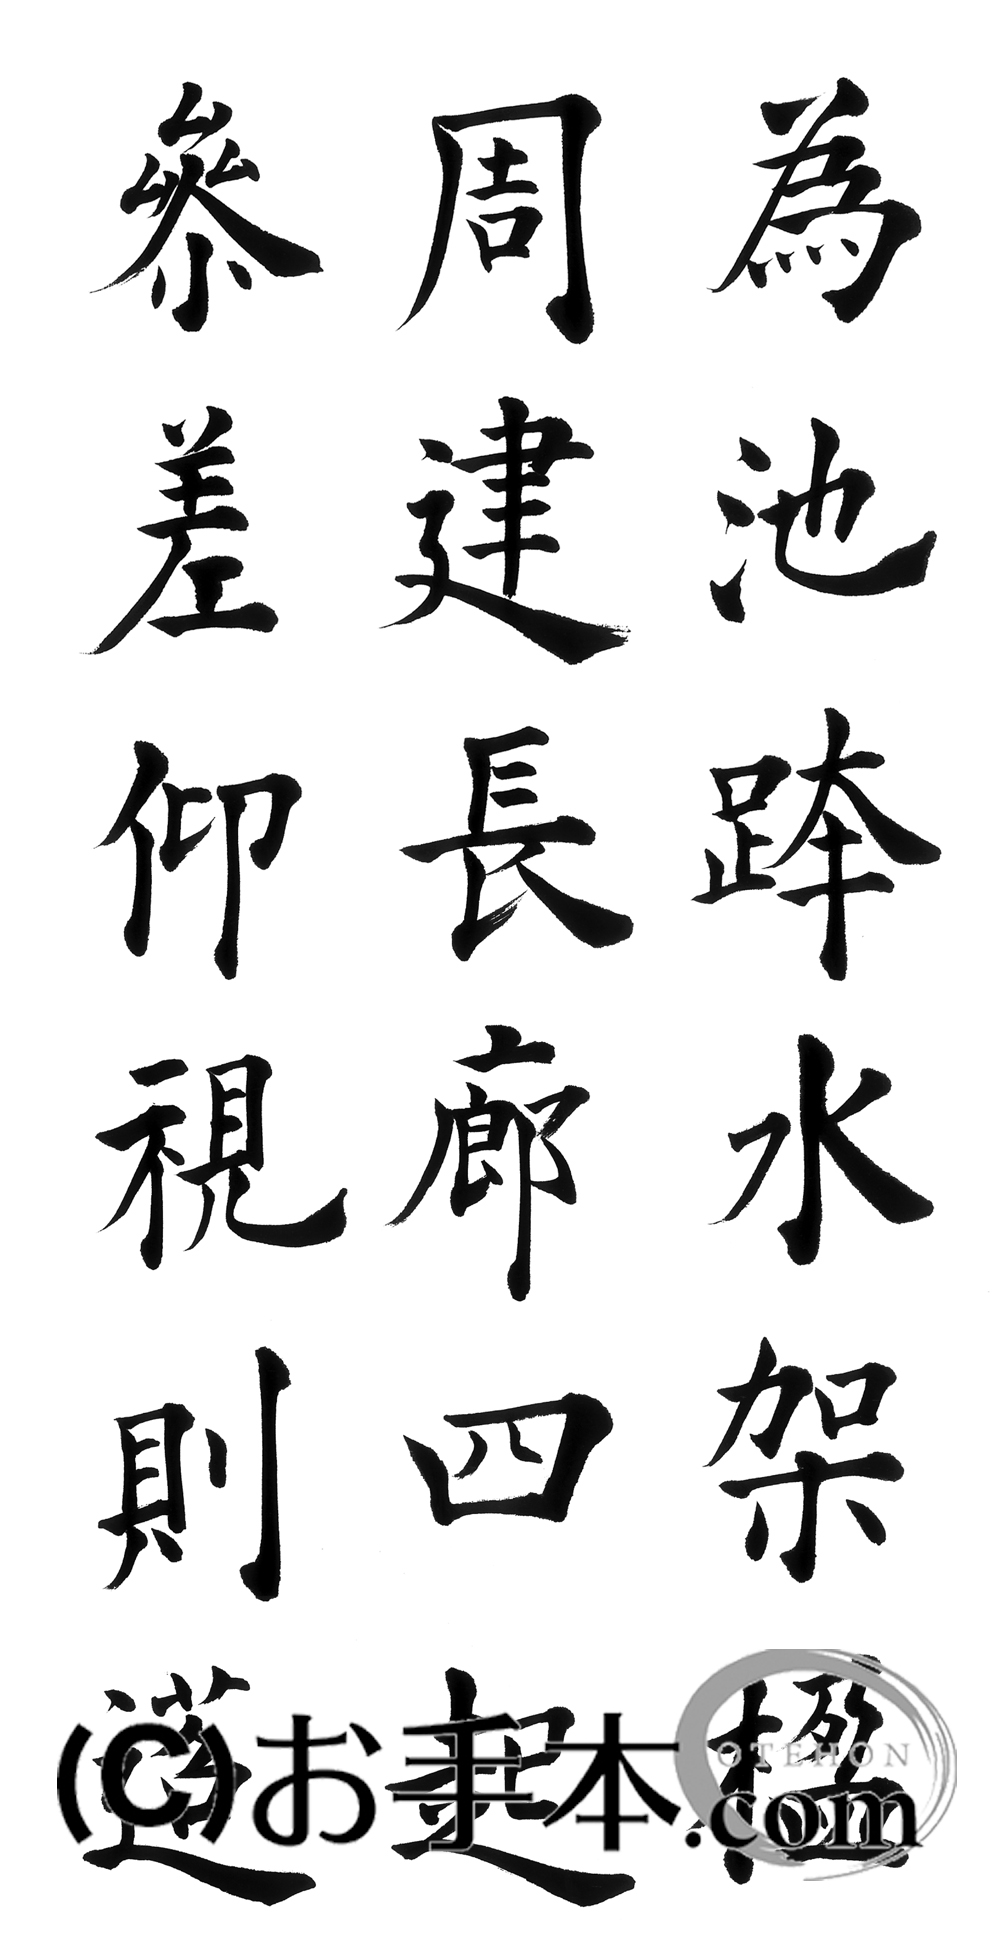 為池跨水架楹
周建長廊四起
參差仰視則迢
(C)お手本.com
OTEHON